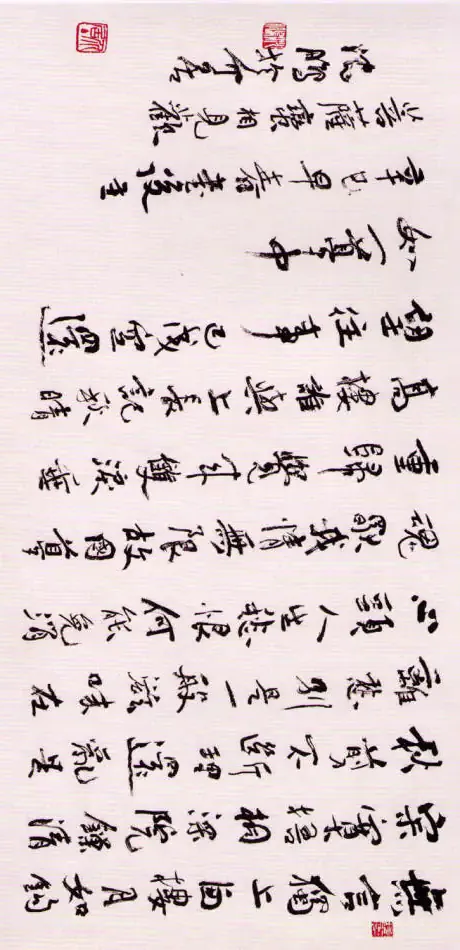 無言獨上西樓月如鉤
寂寞梧桐深院鎖清
秋剪不斷理還亂是
離愁別是一般滋味在
心頭人生愁恨何能免銷
魂獨我情無限故國夢
重歸覺來雙淚垂
高樓誰與上長記秋晴
望往事已成空還
如一夢中
辛巳早春書後主
菩薩蠻相見歡
沈鵬於介居